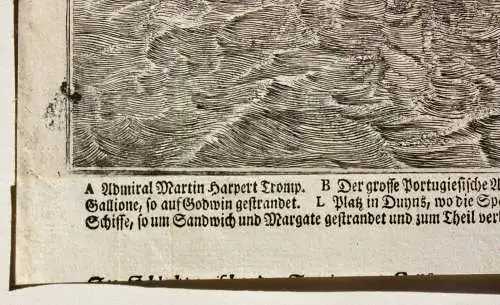 A Admiral Martin Harpert Tromp. B Der grosse Portugiesische A
Gallione, so auf Godwin gestrandet. L Platz in Duyns, wo die Spa
Schiffe, so um Sandwich und Margate gestrandet und zum Theil ver